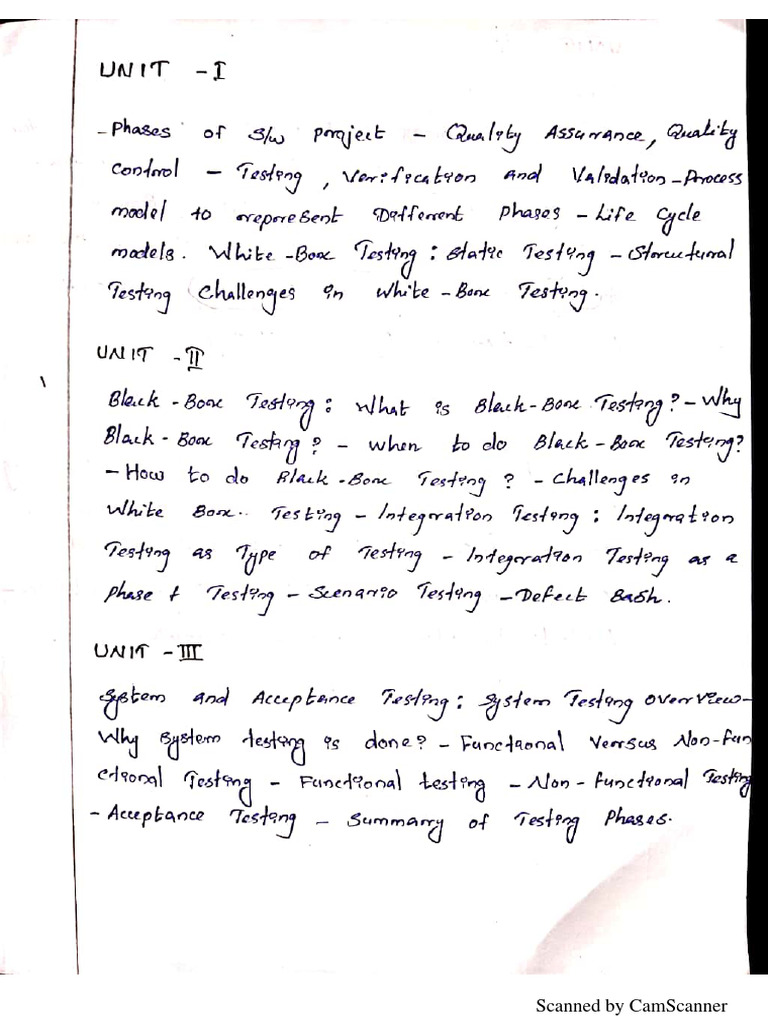 UNIT - I
- Phases of S/W project - Quality Assurance, Quality
control - Testing, Verification and Validation - Process
model to represent Different Phases - Life Cycle
models. White - Box Testing : Static Testing - Structural
Testing Challenges in White - Box Testing.
UNIT - II
Black - Box Testing : What is Black - Box Testing? - Why
Black - Box Testing? - When to do Black - Box Testing?
- How to do Black - Box Testing ? - Challenges in
White Box.. Testing - Integration Testing : Integration
Testing as Type of Testing - Integration Testing as a
Phase f Testing - Scenario Testing - Defect Bash.
UNIT - III
System and Acceptance Testing : System Testing overview -
Why system testing is done? - Functional versus Non-fun
ctional Testing - Functional testing - Non - functional Testing
- Acceptance Testing - Summary of Testing Phases.
Scanned by CamScanner